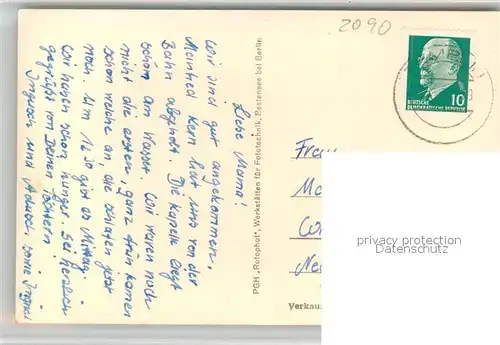 2090
Liebe Mama!
Wir sind gut angekommen.
Meinhed Kern hat uns von der
Bahn abgeholt. Die Kapelle liegt
schön am Wasser. Wir waren noch
nicht die ersten, ganz früh kamen
schon welche an, die schlafen jetzt
noch. Um 12 30 gibt es Mittag.
Wir haben schon Hunger. Sei herzlich
gegrüßt von Deinen Töchtern
und sowie
PGH „Rotophot", Werkstätten für Fototechnik, Bestensee bei Berlin
DEUTSCHE
DEMOKRATISCHE REPUBLIK
10
Verkau
privacy protection
Datenschutz